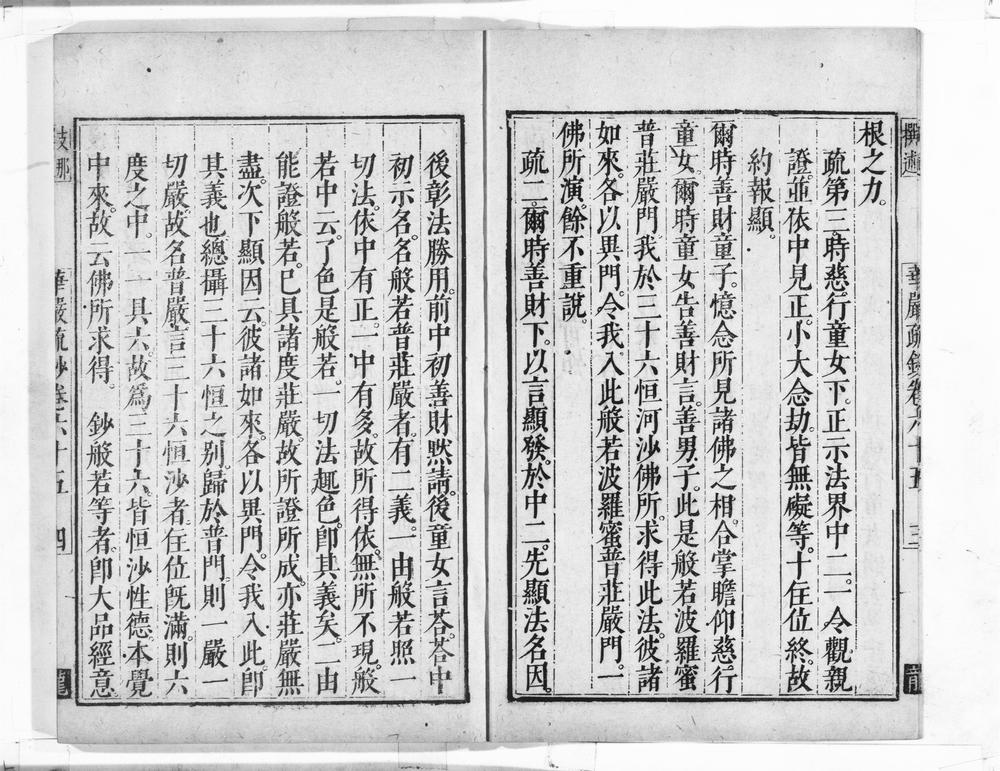 根之力。
疏第三時慈行童女下。正示法界中二。一令觀親
證並依中見正。小大念劫皆無礙等。十住位終。故
約報顯。
爾時善財童子。憶念所見諸佛之相。合掌瞻仰慈行
童女。爾時童女告善財言。善男子。此是般若波羅蜜
普莊嚴門。我於三十六恒河沙佛所。求得此法。彼諸
如來。各以異門。令我入此般若波羅蜜普莊嚴門。一
佛所演。餘不重說。
疏二。爾時善財下。以言顯發。於中二。先顯法名因。
華嚴疏鈔卷六十五 三
龍
後彰法勝用。前中初善財默請。後童女言荅。荅中
初示名。名般若普莊嚴者。有二義。一由般若照一
切法。依中有正。一中有多。故所得依。無所不現。般
若中云。了色是般若。一切法趣色。卽其義矣。二由
能證般若。已具諸度莊嚴。故所證所成。亦莊嚴無
盡。次下顯因云。彼諸如來。各以異門。令我入此。卽
其義也。總攝三十六恒之別。歸於普門。則一嚴一
切嚴。故名普嚴。言三十六恒沙者。住位旣滿。則六
度之中。一一具六。故為三十六。皆恒沙性德本覺
中來。故云佛所求得。 鈔般若等者。卽大品經意
華嚴疏鈔卷六十五 四
龍